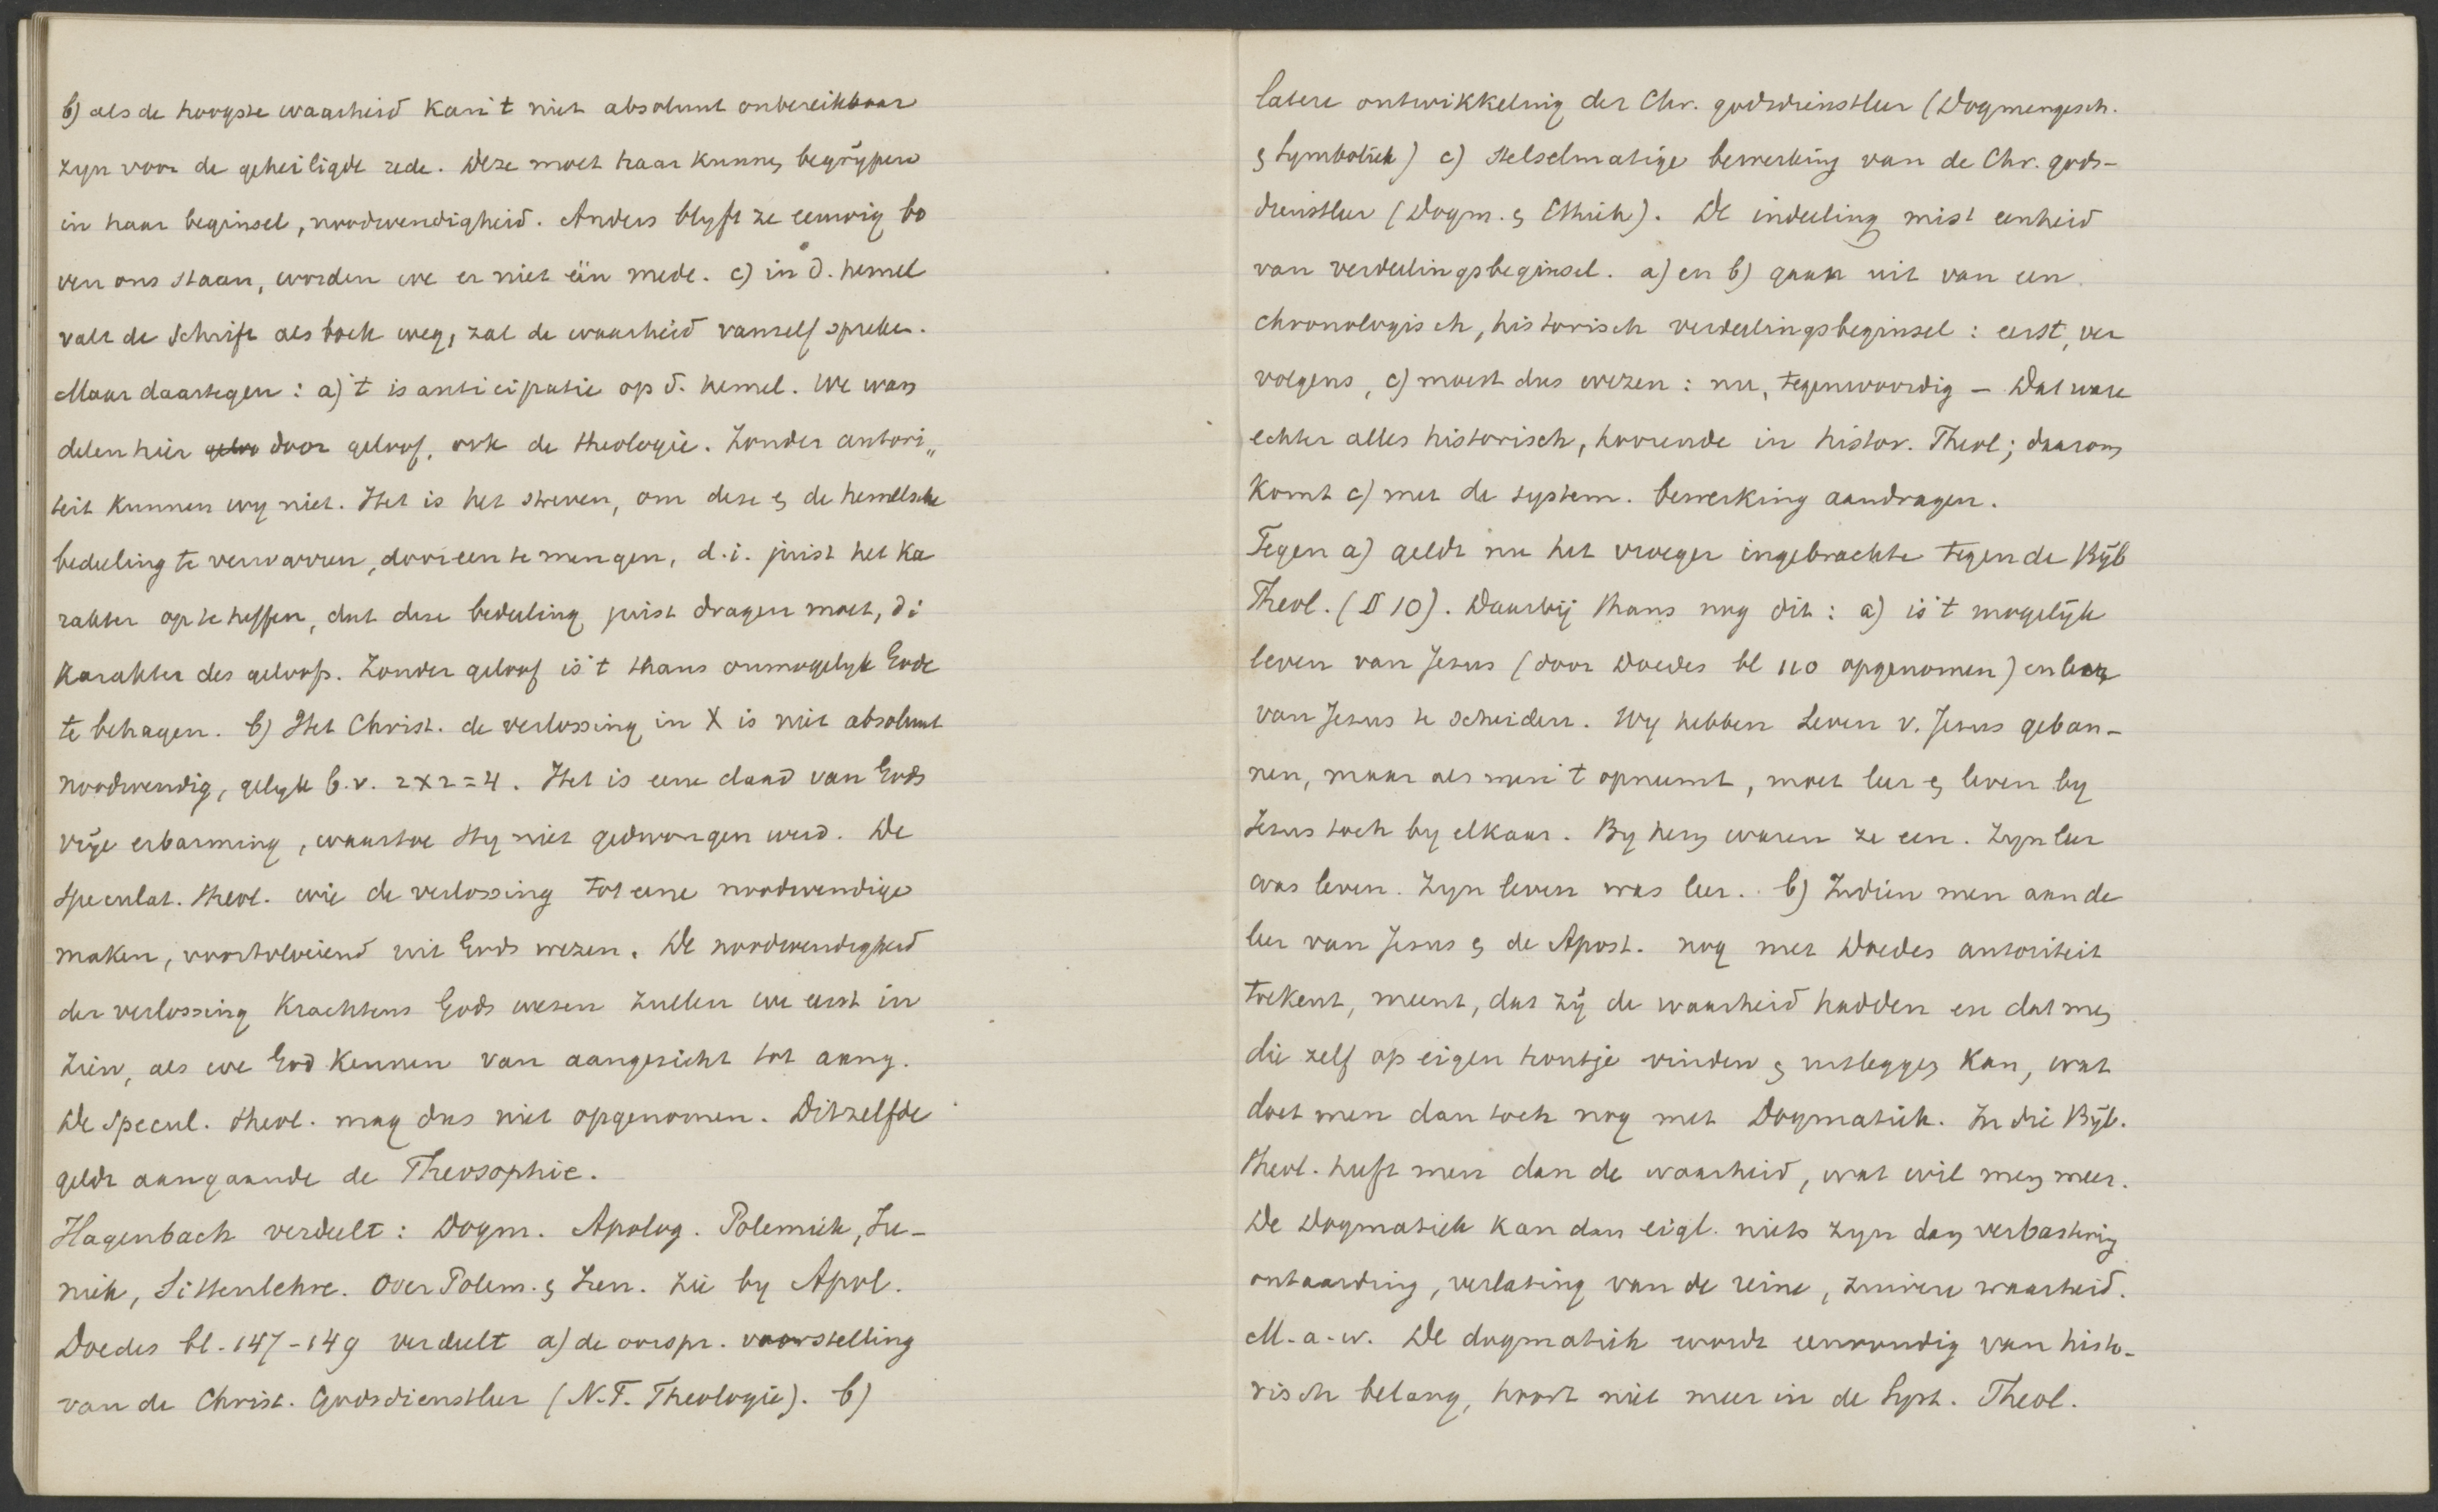 b) als de hoogste waarheid kan 't niet absoluut onbereikbaar
zyn voor de geheiligde rede. Deze moet haar kunnen begrypen
in haar beginsel, noodwendigheid. Anders blyft ze eeuwig bo
ven ons staan, worden we er niet één mede. c) in d. hemel
valt de Schrift als boek weg, zal de waarheid vanzelf spreken.
Maar daartegen: a) 't is anticipatie op d. hemel. We wan
delen hier geloo door geloof, ook de theologie. Zonder autori„
teit kunnen wy niet. Het is het streven, om deze & de hemelsche
bedeeling te verwarren, dooreen te mengen, d.i. juist het ka
rakter op te heffen, dat deze bedeeling juist dragen moet, d i
karakter des geloofs. Zonder geloof is 't thans onmogelyk Gode
te behagen. b) Het Christ. de verlossing in X is niet absoluut
noodwendig, gelyk b.v. 2x2=4. Het is eene daad van Gods
vrije erbarming, waartoe Hy niet gedwongen werd. De
Speculat. theol. wil de verlossing tot eene noodwendige
maken, voortvloeiend uit Gods wezen. De noodwendigheid
der verlossing krachtens Gods wezen zullen we eerst in
zien, als we God kennen van aangezicht tot aang.
De Specul. theol. mag dus niet opgenomen. Ditzelfde
geldt aangaande de Theosophie.
Hagenbach verdeelt: Dogm. Apolog. Polemiek, Ire-
niek, Sittenlehre. Over Polem. & Iren. zie by Apol.
Doedes bl. 147-149 verdeelt a) de oorspr. voorstelling
van de Christ. Godsdienstleer (N.T. Theologie). b)
latere ontwikkeling der Chr. godsdienstleer (Dogmengesch.
& Symboliek) c) Stelselmatige bewerking van de Chr. gods-
dienstleer (Dogm. & Ethiek). De indeeling mist eenheid
van verdeelingsbeginsel. a) en b) gaan uit van een
chronologisch, historisch verdeelingsbeginsel: eerst, ver
volgens, c) moest dus wezen: nu, tegenwoordig – Dat ware
echter alles historisch, hoorende in histor. Theol; daarom
komt c) met de system. bewerking aandragen.
Tegen a) geldt nu het vroeger ingebrachte tegen de Bijb
Theol. (§ 10). Daarbij thans nog dit: a) is 't mogelijk
leven van Jesus (door Doedes bl 110 opgenomen) en leer
van Jesus te scheiden. Wy hebben Leven v. Jesus geban-
nen, maar als men 't opneemt, moet leer & leven by
Jesus toch by elkaar. By hem waren ze een. Zyn leer
was leven. Zyn leven was leer. b) Indien men aan de
leer van Jesus & de Apost. nog met Doedes autoriteit
toekent, meent, dat zij de waarheid hadden en dat men
die zelf op eigen houtje vinden & uitleggen kan, wat
doet men dan toch nog met Dogmatiek. In die Bijb.
theol. heeft men dan de waarheid, wat wil men meer.
De Dogmatiek kan dan eigl. niets zyn dan verbastering
ontaarding, verlating van de reine, zuivere waarheid.
M.a.w. De dogmatiek wordt eenvoudig van histo-
risch belang, hoort niet meer in de Syst. Theol.